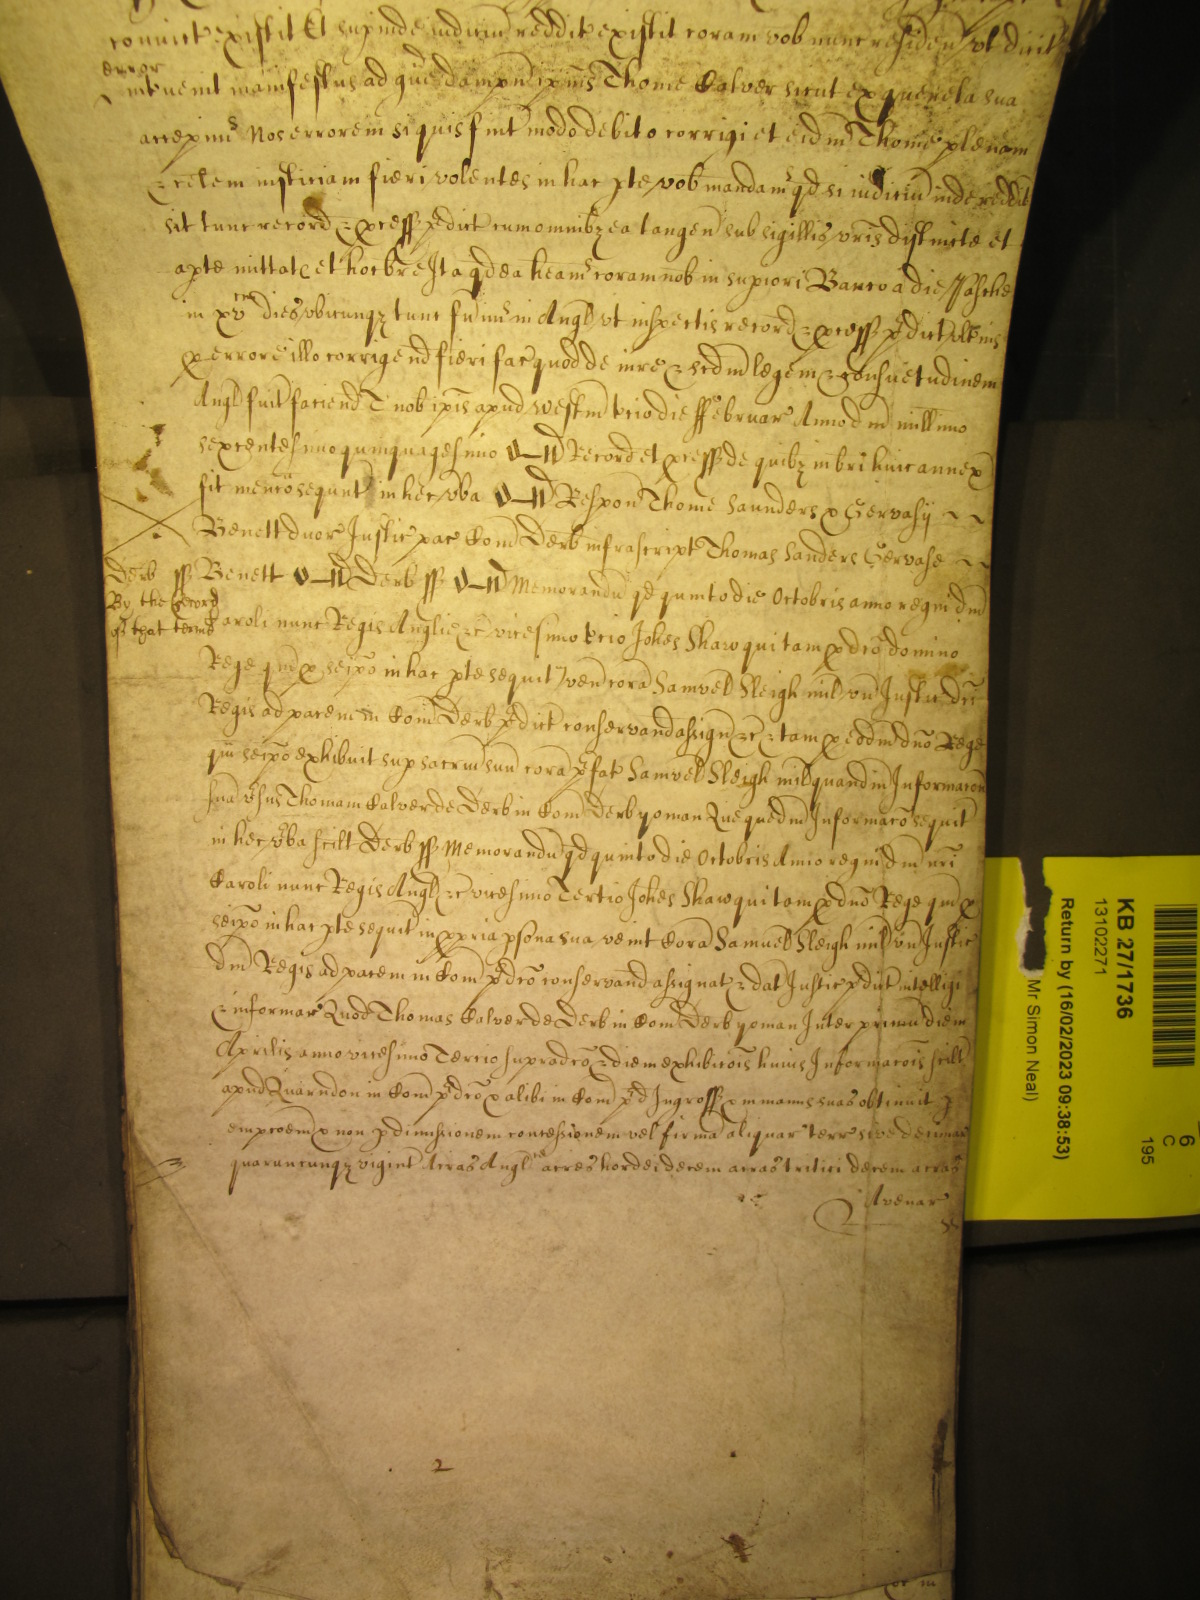 convict existit Et supinde iudiciu reddit existit coram vob nunc residen vt dicit
error
intervenit manifestus ad gve dampnu ipius Thome Calver sicut ex querela sua
accepim9 Nos errorem si quis fuit modo debito corrigi et eidm Thome plenam
& celerem iusticiam fieri volentes in hac pte vob mandam9 qd si iudiciu inde reddit
sit tunc record & process pdict cum omnibz ea tangen sub sigillis vris distincte et
apte mittatis et hoc bre Ita qd ea heam9 coram nob in supiori Banco a die Pasche
in xv dies vbicunqz tunc fuim9 in Angl vt inspectis record & process pdict vlterius
p errore illo corrigend fieri fac quod de iure & scdm legem & consuetudinem
Angl fuit faciend T nob ipis apud Westm tcio die ffebruar Anno dni millimo
sexcentesimo quinquagesimo Record et process de quibz in bri huic annex
fit mencio sequnt in hec vba Respon Thome Saunders & Gervasij
Benett duor Justic pac Com Derb infrascript Thomas Sanders Gervase
Derb ss Benett Derb ss Memorandu qd quinto die Octobris anno regni dni
By the Record
of that terme
Caroli nunc Regis Anglie &c vicesimo tcio Johes Shaw qui tam p dco domino
Rege qm p seipo in hac pte sequit ven cora Samuel Sleigh mil vn Justic dci
Regis ad pacem in Com Derb pdict conservand assign &c & tam p eodm dno Rege
qm seipo exhibuit sup sacrm suu cora pfat Samuel Sleigh mil quandm Informacon
sua vsus Thomam Calver de Derb in Com Derb yoman Que quedm Informaco sequit
in hec vba scilt Derb ss Memorandu qd quinto die Octobris Anno regni dni nri
Caroli nunc Regis Angl &c vicesimo Tertio Johes Shaw qui tam p dno Rege qm p
seipo in hac pte sequit in ppria psona sua venit Cora Samuel Sleigh mil vn Justic
dni Regis ad pacem in Com pdco conservand assignat & dat Justic pdict intelligi
& informar Quod Thomas Calver de Derb in Com Derb yoman Inter primu diem
Aprilis anno vicesimo Tercio supradco & diem exhibicois huius Informacois scilt
apud Quarndon in Com pdco & alibi in Com pd Ingross & in manus suas obtinuit p
empcoem & non p dimissionem concessionem vel firma aliquar terr sive decimar
quarumcunqz vigint Acras Angl acres hordei decem acras tritici decem acras
Avenar
2
KB 27/1736
13102271
Return by (16/02/2023 09:38:53)
Mr Simon Neal)
6
C
195